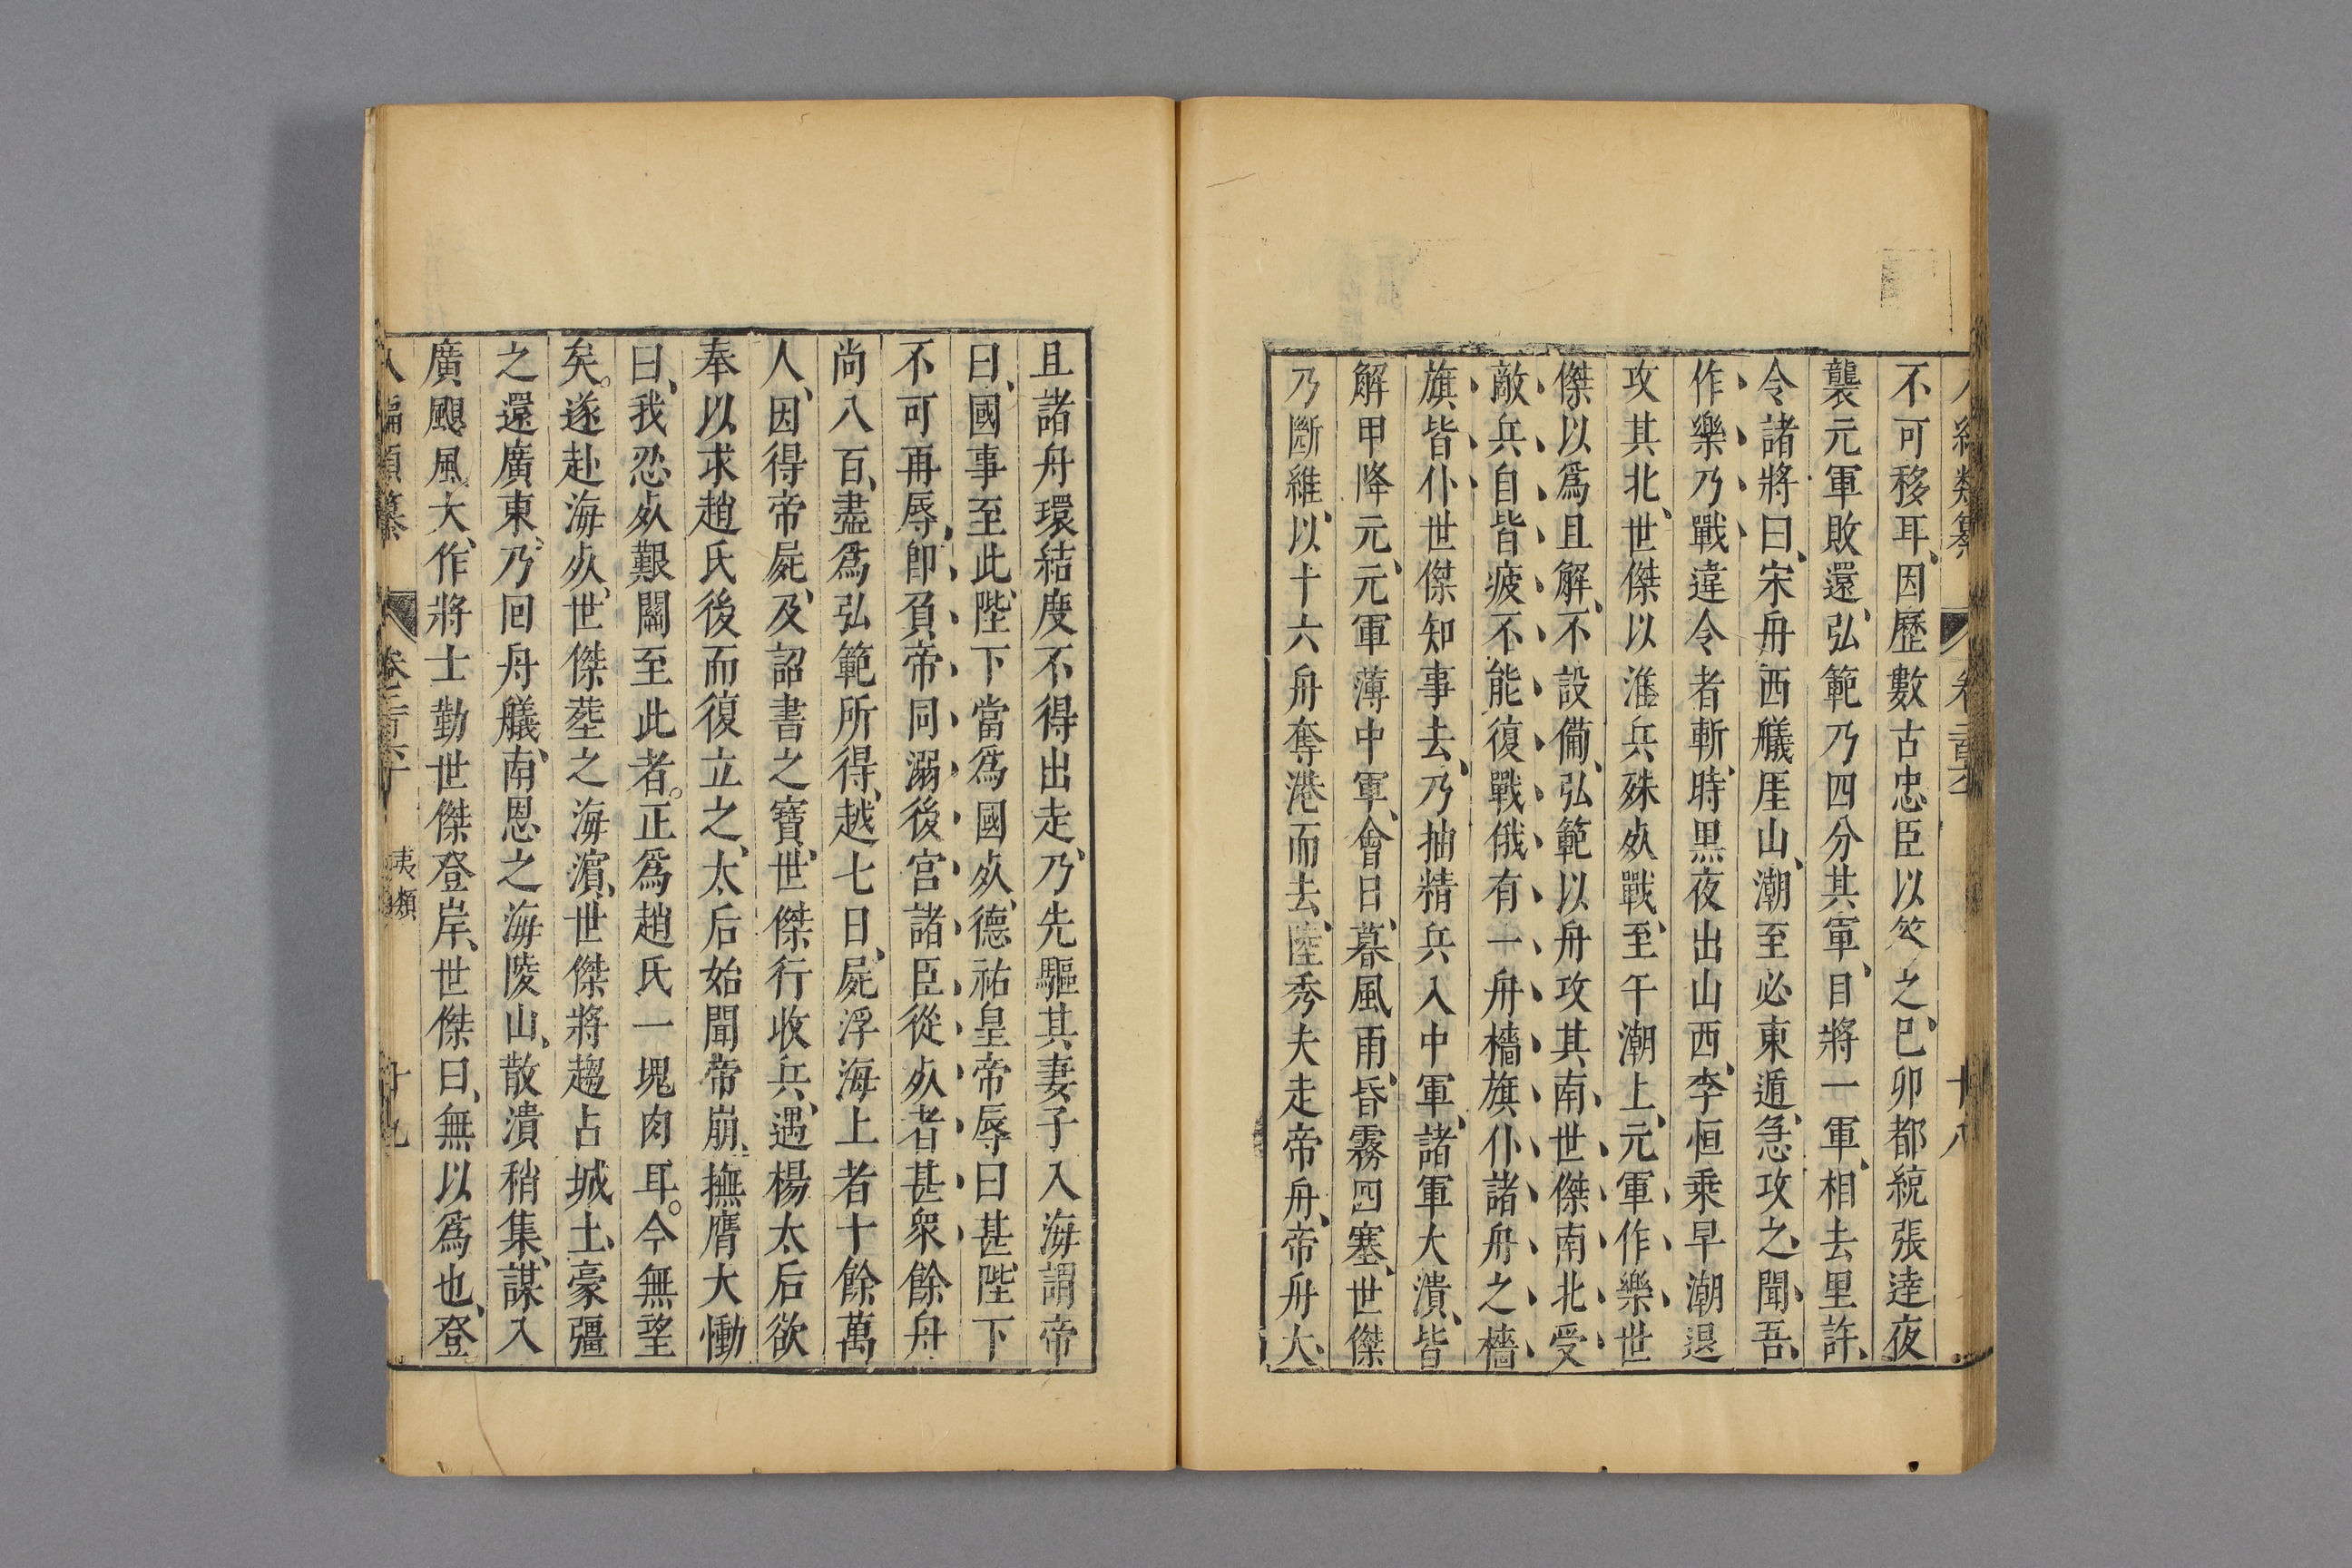 不可移耳、因歷數古忠臣以答之、巳卯都統張逹夜
襲元軍敗還、弘範乃四分其軍、自將一軍、相去里許、
令諸將曰、宋舟西艤厓山、潮至必東遁、急攻之、聞吾、
作樂乃戰違令者斬、時黒夜出山西、李恒乗早潮退
攻其北、世傑以淮兵殊㱙戰、至午潮上、元軍作樂、世
傑以爲且解、不設備、弘範以舟攻其南、世傑南北受
敵兵自皆疲不能復戰俄有一舟檣旗仆諸舟之檣
旗皆仆世傑知事去、乃抽精兵入中軍、諸軍大潰、皆
解甲降元、元軍薄中軍、會日暮風雨、昏霧四塞、世傑
乃斷維、以十六舟奪港而去、陸秀夫走帝舟、帝舟大、
十八
且諸舟環結度不得出走、乃先驅其妻子入海謂帝
曰、國事至此、陛下當爲國㱙、德祐皇帝辱曰甚、陛下
不可再辱、卽負帝同溺後宮諸臣從㱙者甚衆餘舟
尚八百、盡爲弘範所得、越七日、屍浮海上者十餘萬
人、因得帝屍、及詔書之寶、世傑行收兵、遇楊太后欲
奉以求趙氏後而復立之、太后始聞帝崩、撫膺大慟
曰、我忍㱙艱關至此者。正爲趙氏一塊肉耳。今無望
矣。遂赴海㱙、世傑塟之海濵、世傑將趨占城、土豪彊
之還廣東、乃回舟艤、南恩之海陵山、散潰稍集、謀入
廣颶風大、作將士勸世傑登岸、世傑曰、無以爲也、登
夷類
十九